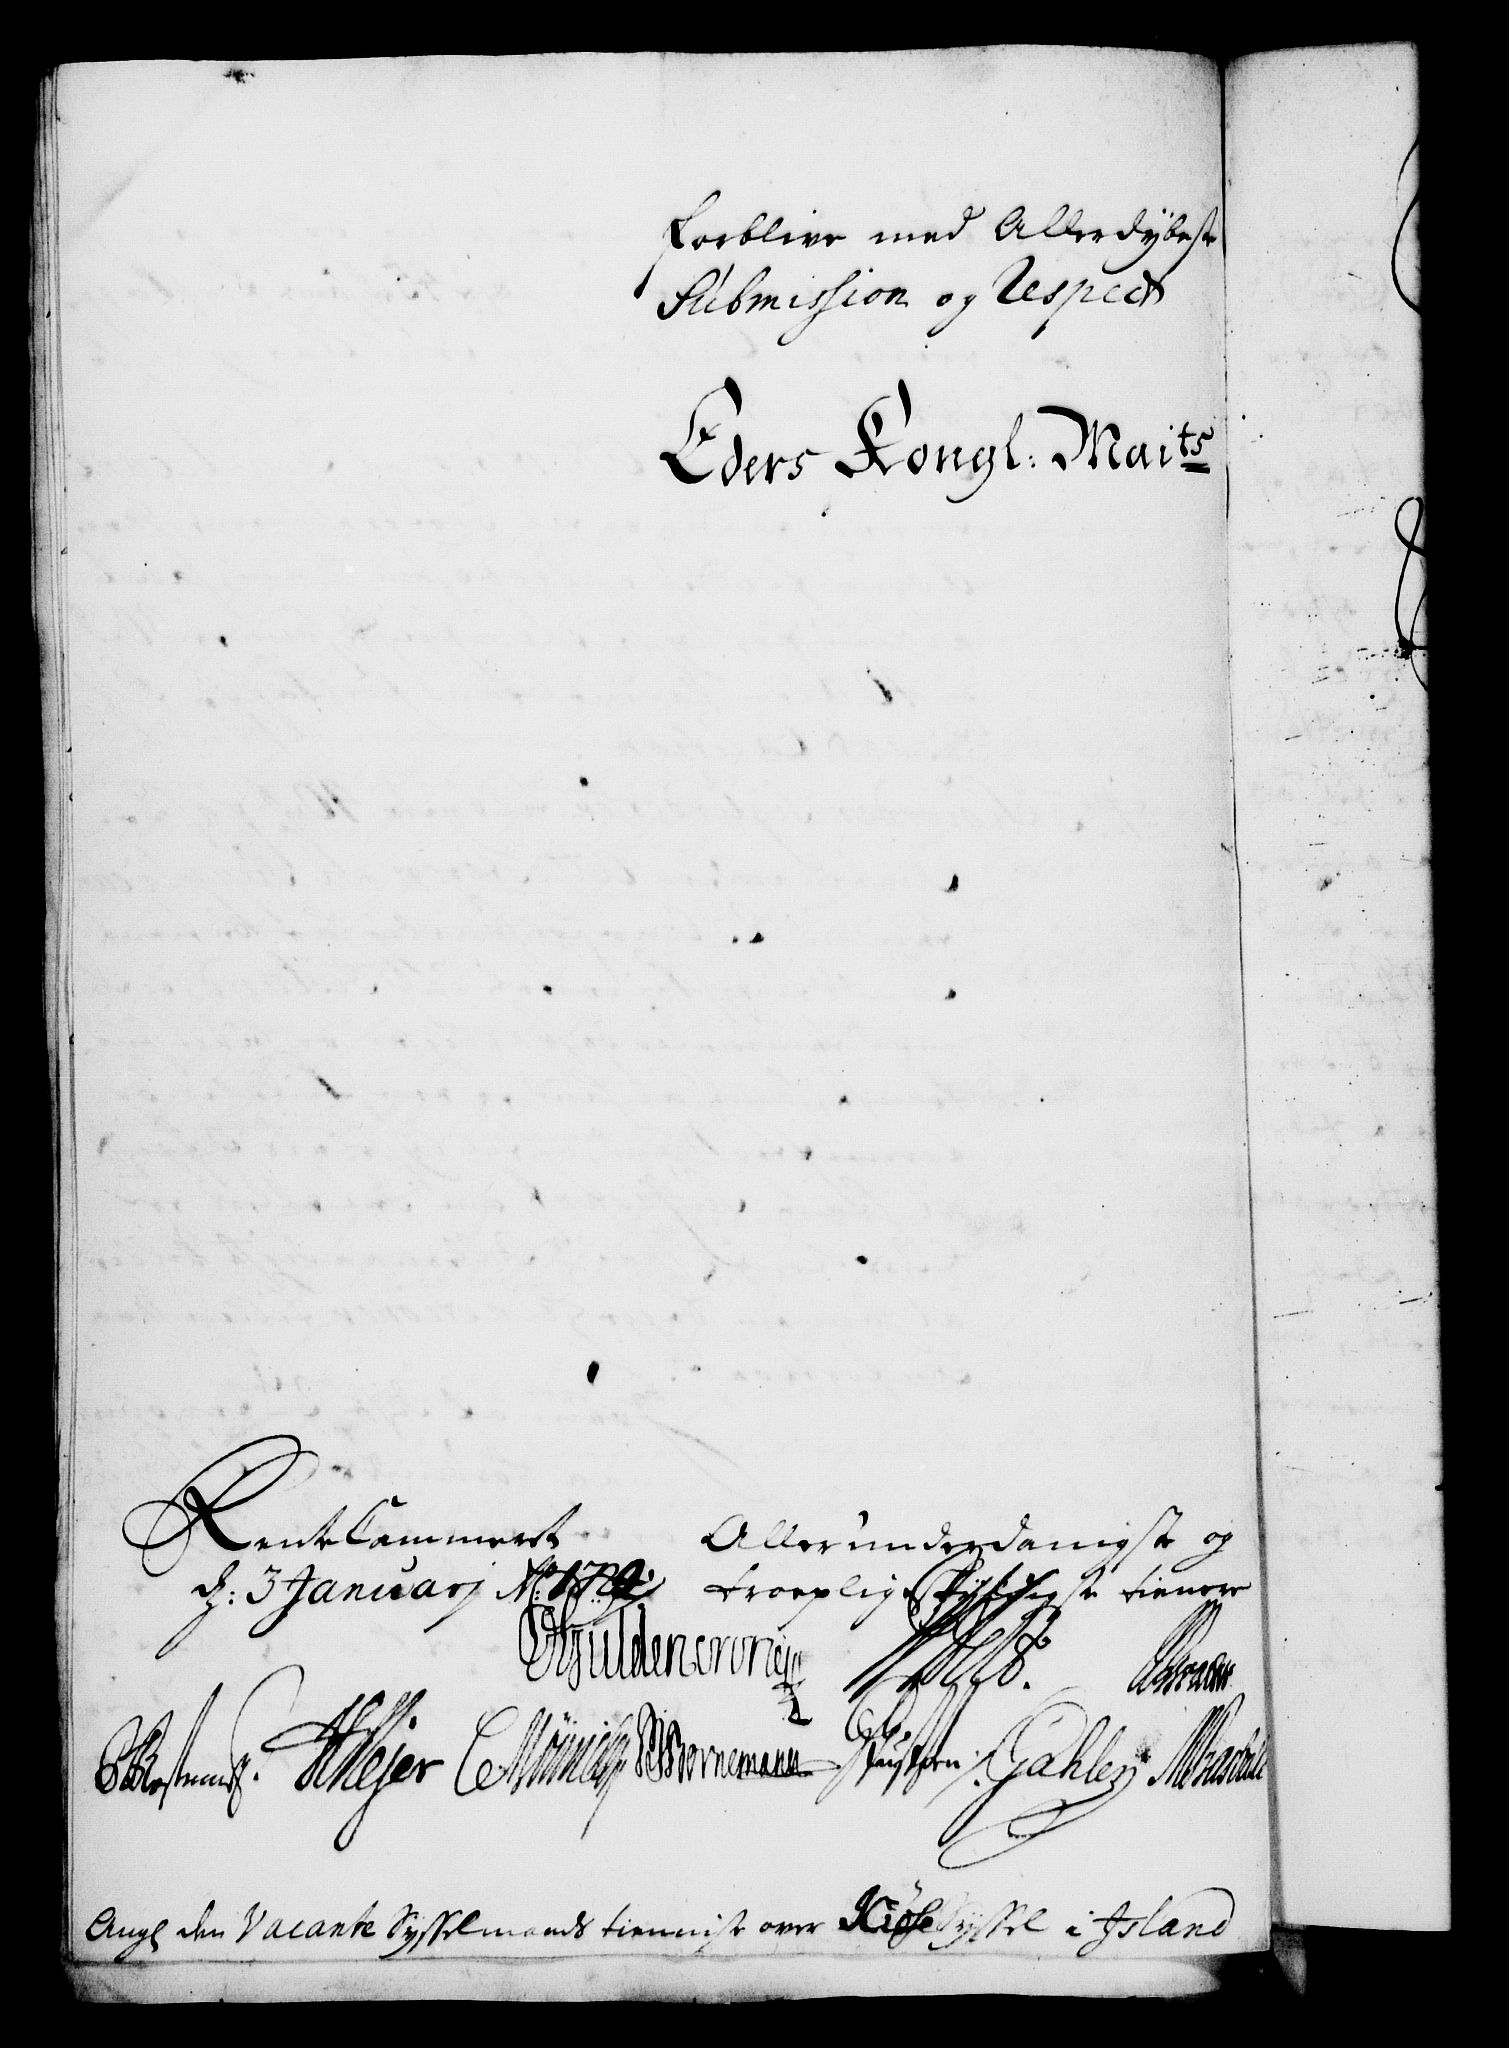 forblive med Allerdÿbeste
Submission og Respect
Eders Kongl: Maits
RenteCammeret
d: 3 Januarj
Allerunderdanigst og
troepligtskyldigste tienere
CHGuldencrone
WMejer CMünich Bornemann JGähler
Angl den Vacante Sysselmands tienniste over Kiøse Syssel i Jsland